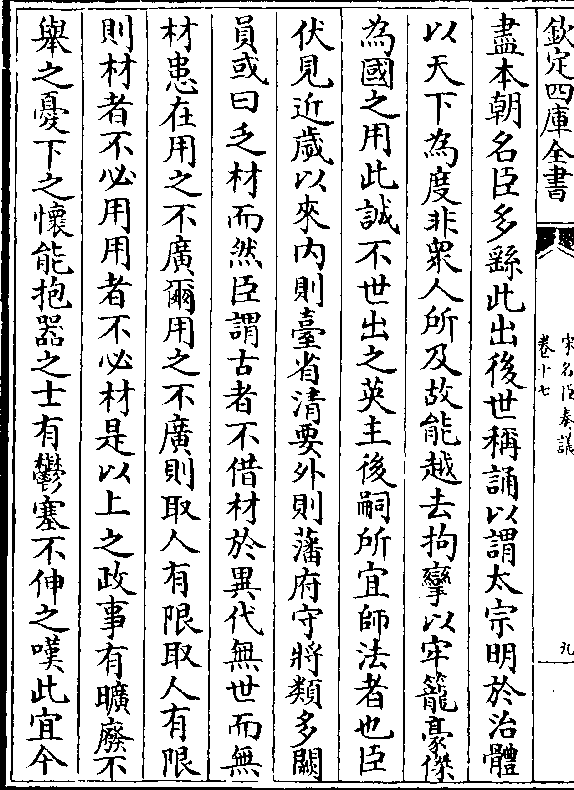 欽定四庫全書
宋名臣奏議
卷十七
九
盡本朝名臣多繇此出後世稱誦以謂太宗明於治體
以天下為度非衆人所及故能越去拘攣以牢籠豪傑
為國之用此誠不世出之英主後嗣所宜師法者也臣
伏見近歲以來内則臺省清要外則藩府守將類多闕
員或曰乏材而然臣謂古者不借材於異代無世而無
材患在用之不廣爾用之不廣則取人有限取人有限
則材者不必用用者不必材是以上之政事有曠廢不
舉之憂下之懷能抱器之士有鬱塞不伸之嘆此宜今